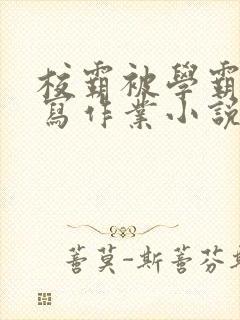 校霸被學霸
寫作業小說
蓍莫-斯蓍芬斯